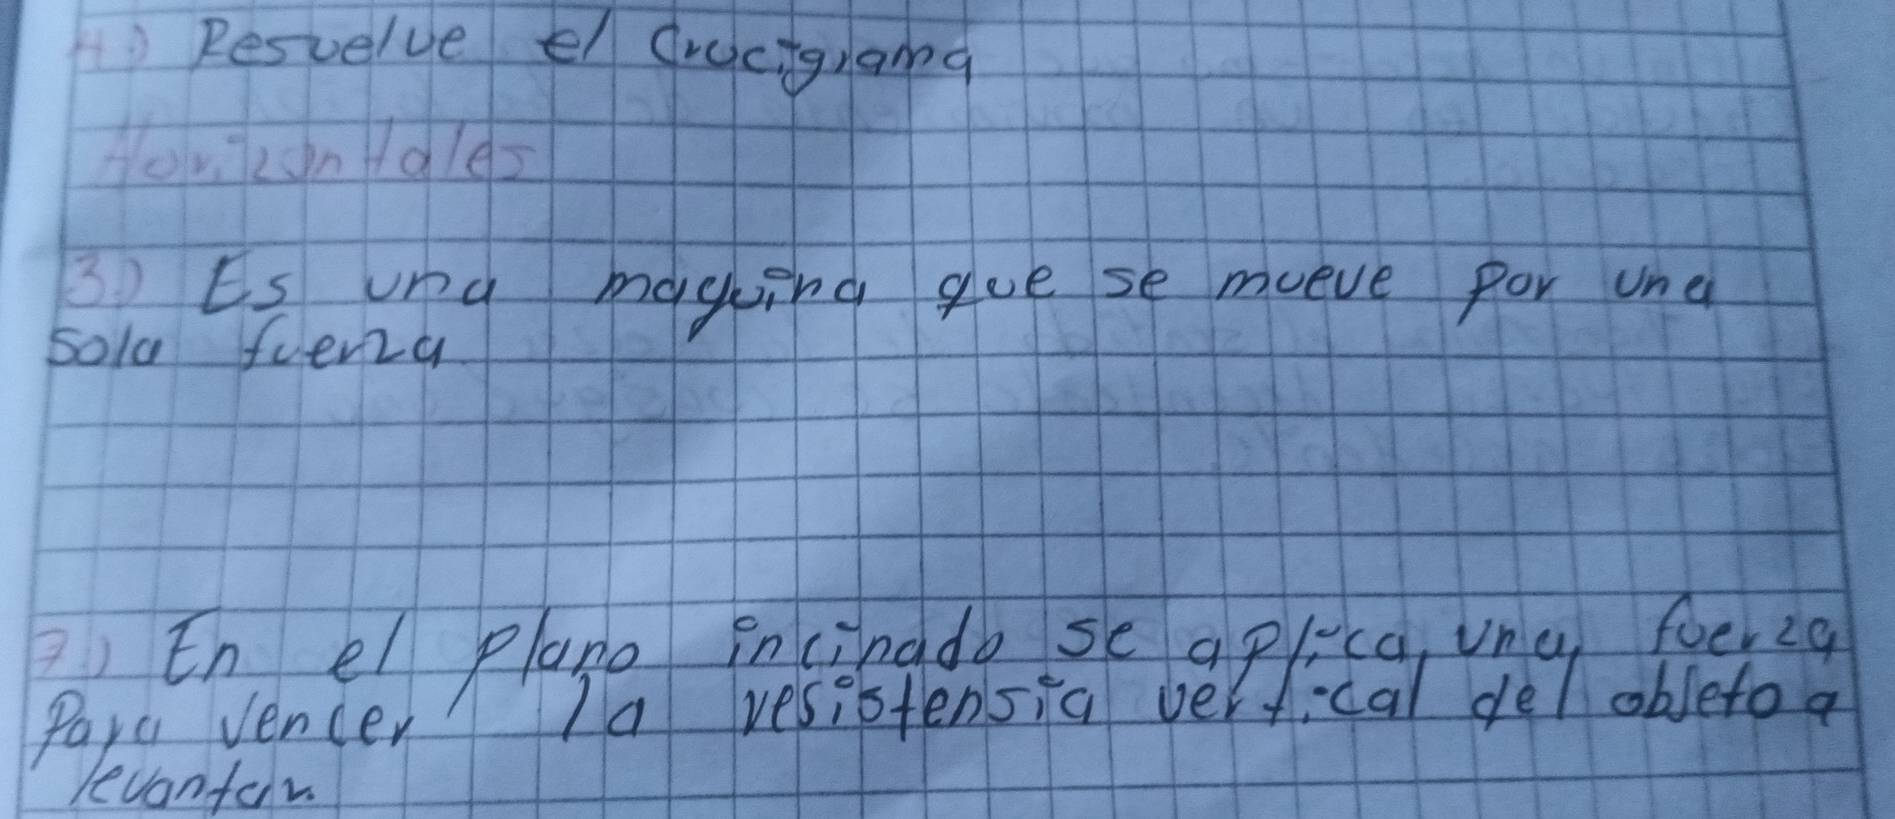 4.) Resuelve el Crucigrama
Horizontales
3.) Es una maquina que se mueve por una
sola fuerza
7.) En el plano incinado se aplica una fuerza
Para vencer la resistensia vertical del objeto a
levantar.